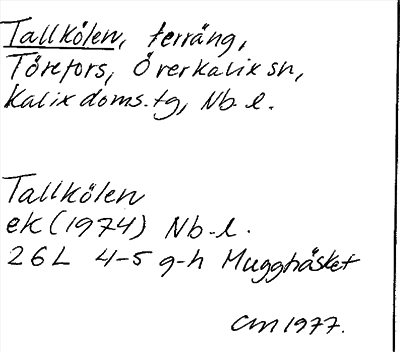 Tallkölen, terräng,
Törefors, Överkalix sn,
Kalix doms.tg, Nb.l.
Tallkölen
ek (1974) Nb.l.
26L 4-5 g-h Mugghäsket
CM 1977.